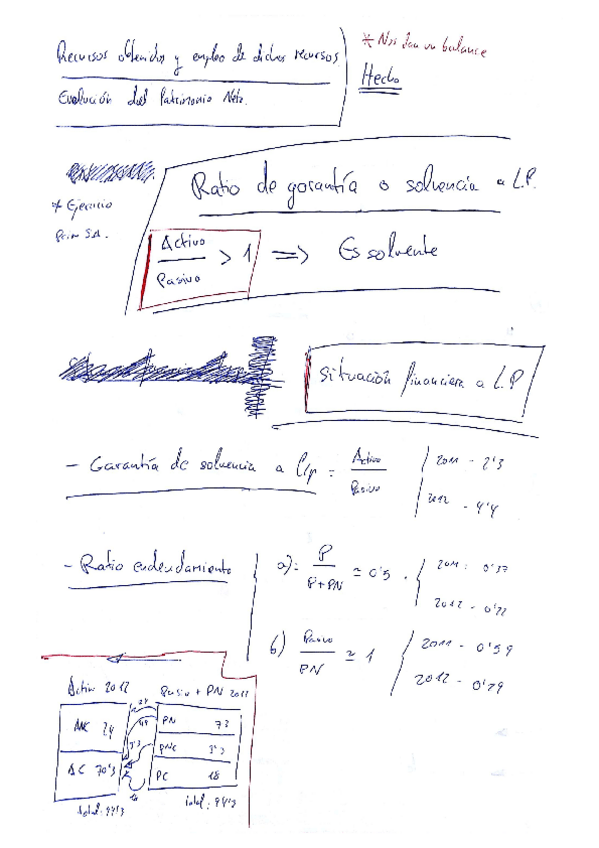 Recursos obtenidos y empleo de dichos recursos.
Evolución del Patrimonio Neto.
* Nos dan un balance
Hecho
* Ejercicio
S.A.
Ratio de garantía o solvencia a L.P.
Activo
Pasivo
> 1 => Es solvente
Situación financiera a L.P
- Garantía de solvencia a l/p = Activo
Pasivo
2011 - 2'3
2012 - 4'4
- Ratio endeudamiento
a): P
P+PN
≃ 0'5
2011: 0'37
2012 - 0'22
b) Pasivo
PN
≃ 1
2011 - 0'59
2012 - 0'29
Activo 2012
ANC 24
AC 70'3
total: 94'3
Pasivo + PN 2012
PN 73
PNC 3'3
PC 18
total: 94'3